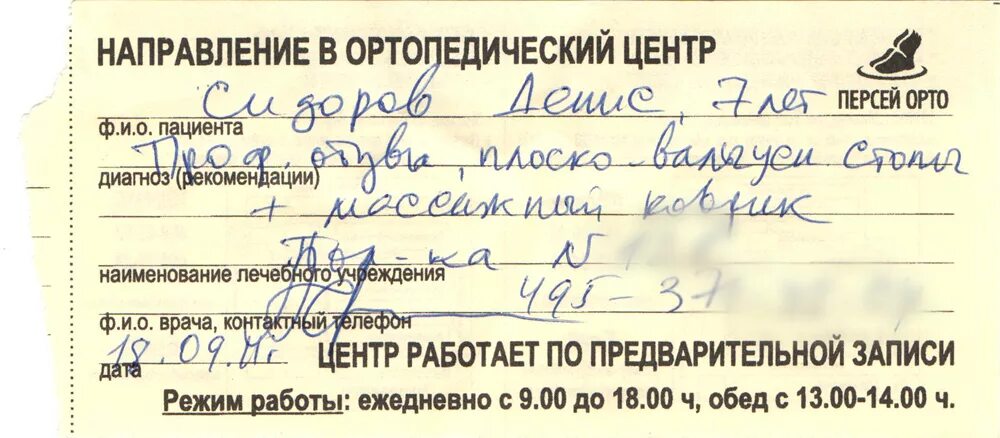 НАПРАВЛЕНИЕ В ОРТОПЕДИЧЕСКИЙ ЦЕНТР
Сидоров Денис, 7 лет
ПЕРСЕЙ ОРТО
ф.и.о. пациента
Проф. обувь, плоско-вальгусн стопы
диагноз (рекомендации)
+ массажный коврик
N
наименование лечебного учреждения
495-37
ф.и.о. врача, контактный телефон
18.09.
ЦЕНТР РАБОТАЕТ ПО ПРЕДВАРИТЕЛЬНОЙ ЗАПИСИ
дата
Режим работы: ежедневно с 9.00 до 18.00 ч, обед с 13.00-14.00 ч.